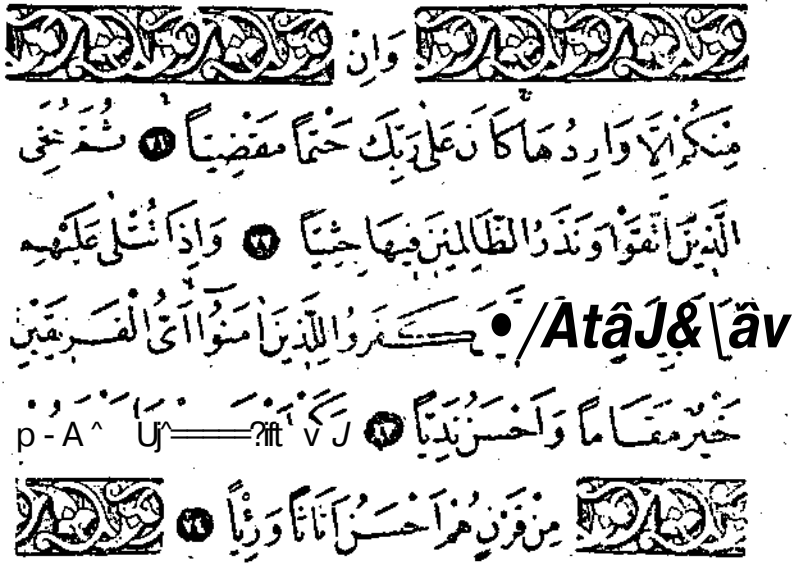 وَاِنْ
مِنْكُمْ اِلَّا وَارِدُهَا كَانَ عَلٰى رَبِّكَ حَتْمًا مَقْضِيًّا ٧١ ثُمَّ نُنَجِّى
الَّذِينَ اتَّقَوْا وَنَذَرُ الظَّالِمِينَ فِيهَا جِثِيًّا ٧٢ وَاِذَا تُتْلٰى عَلَيْهِمْ
•/AtâJ&\âv كَفَرُوا لِلَّذِينَ اٰمَنُوا اَىُّ الْفَرِيقَيْنِ
خَيْرٌ مَقَامًا وَاَحْسَنُ نَدِيًّا ٧٣ p - A ^ Uj^ ?ift v J
مِنْ قَرْنٍ هُمْ اَحْسَنُ اَثَاثًا وَرِءْيًا ٧٤